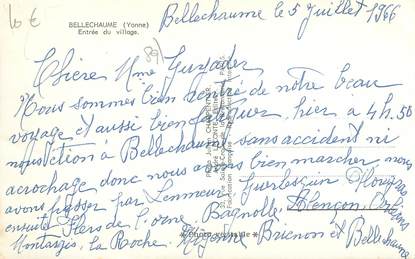 10 €
BELLECHAUME (Yonne)
Entrée du village.
89
Bellechaume le 5 Juillet 1966
Chère Mme
Nous sommes bien rentré de notre beau
voyage et aussi bien fatiguer hier a 4h.50
nous étion à Bellechaume sans accident ni
acrochage donc nous avons bien marcher, nous
avons passer par Lanmeur Guerlesquin Plouigneau
ensuite Flers de l'orne Bagnolle, Alençon, Orléans
Montargis, La Roche, Migennes Brienon et Bellechaume